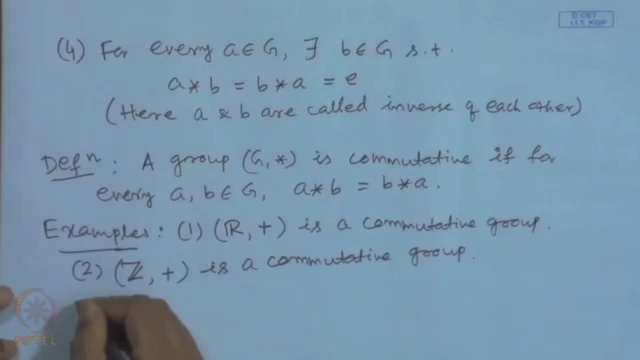 © CET
I.I.T. KGP
(4) For every a ∈ G, ∃ b ∈ G s.t.
a * b = b * a = e
(Here a & b are called inverse of each other)
Defⁿ : A group (G, *) is commutative if for
every a, b ∈ G, a * b = b * a.
Examples : (1) (ℝ, +) is a commutative group.
(2) (ℤ, +) is a commutative group.
NPTEL